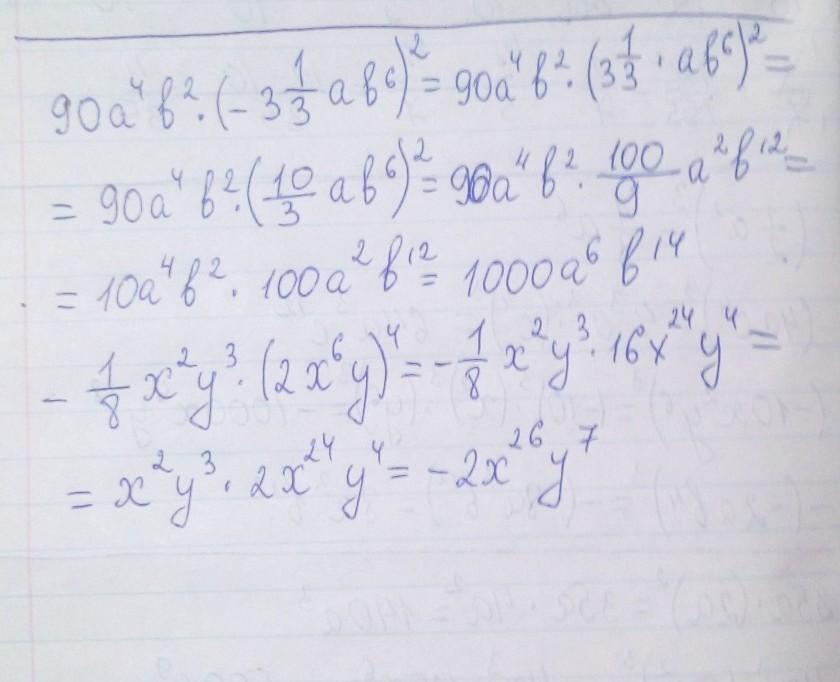 90a⁴b²·(-3 1/3 ab⁶)² = 90a⁴b²·(3 1/3 · ab⁶)² =
= 90a⁴b²·(10/3 ab⁶)² = 90a⁴b² · 100/9 a²b¹² =
= 10a⁴b² · 100a²b¹² = 1000a⁶b¹⁴
- 1/8 x²y³·(2x⁶y)⁴ = - 1/8 x²y³·16x²⁴y⁴ =
= x²y³ · 2x²⁴y⁴ = -2x²⁶y⁷